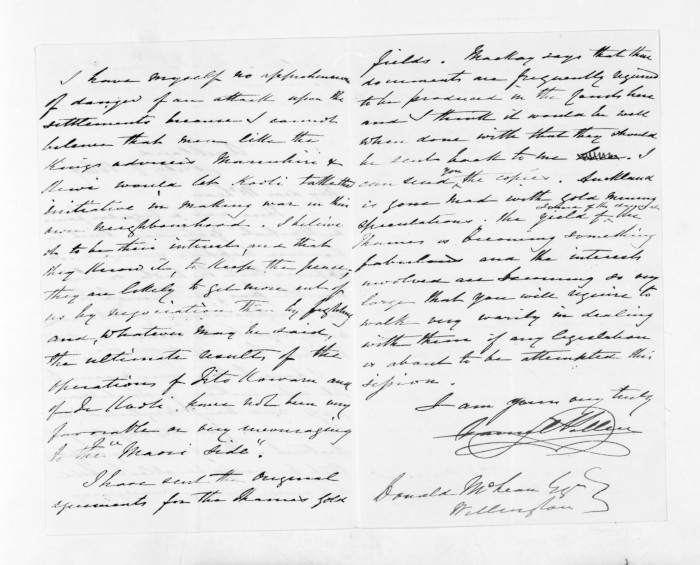 I have myself no apprehension
of danger of an attack upon the
settlements because I cannot
believe that men like the
Kings advisers Manuhiri &
Rewa would let Kooti take the
initiative in making war in their
own neighbourhood. I believe
it to be their interest, and that
they know it, to keep the peace,
they are likely to get more out of
us by negociation than by fighting
and, whatever may be said,
the ultimate results of the
operations of Tito Kowaru and
of Te Kooti have not been very
favorable or very encouraging
to the "Maori side".
I have sent the original
agreements for the Thames gold
fields. Mackay says that these
documents are frequently required
to be produced in the Courts here
and I think it would be well
when done with that they should
be sent back to me. I
can send you the copies. Auckland
is gone mad with gold mining
speculations. The yield of the
Thames is becoming something
fabulous and the interests
involved are becoming so very
large that you will require to
walk very warily in dealing
with them if any legislation
is about to be attempted this
session.
I am yours very truly
Donald McLean Esqr
Wellington